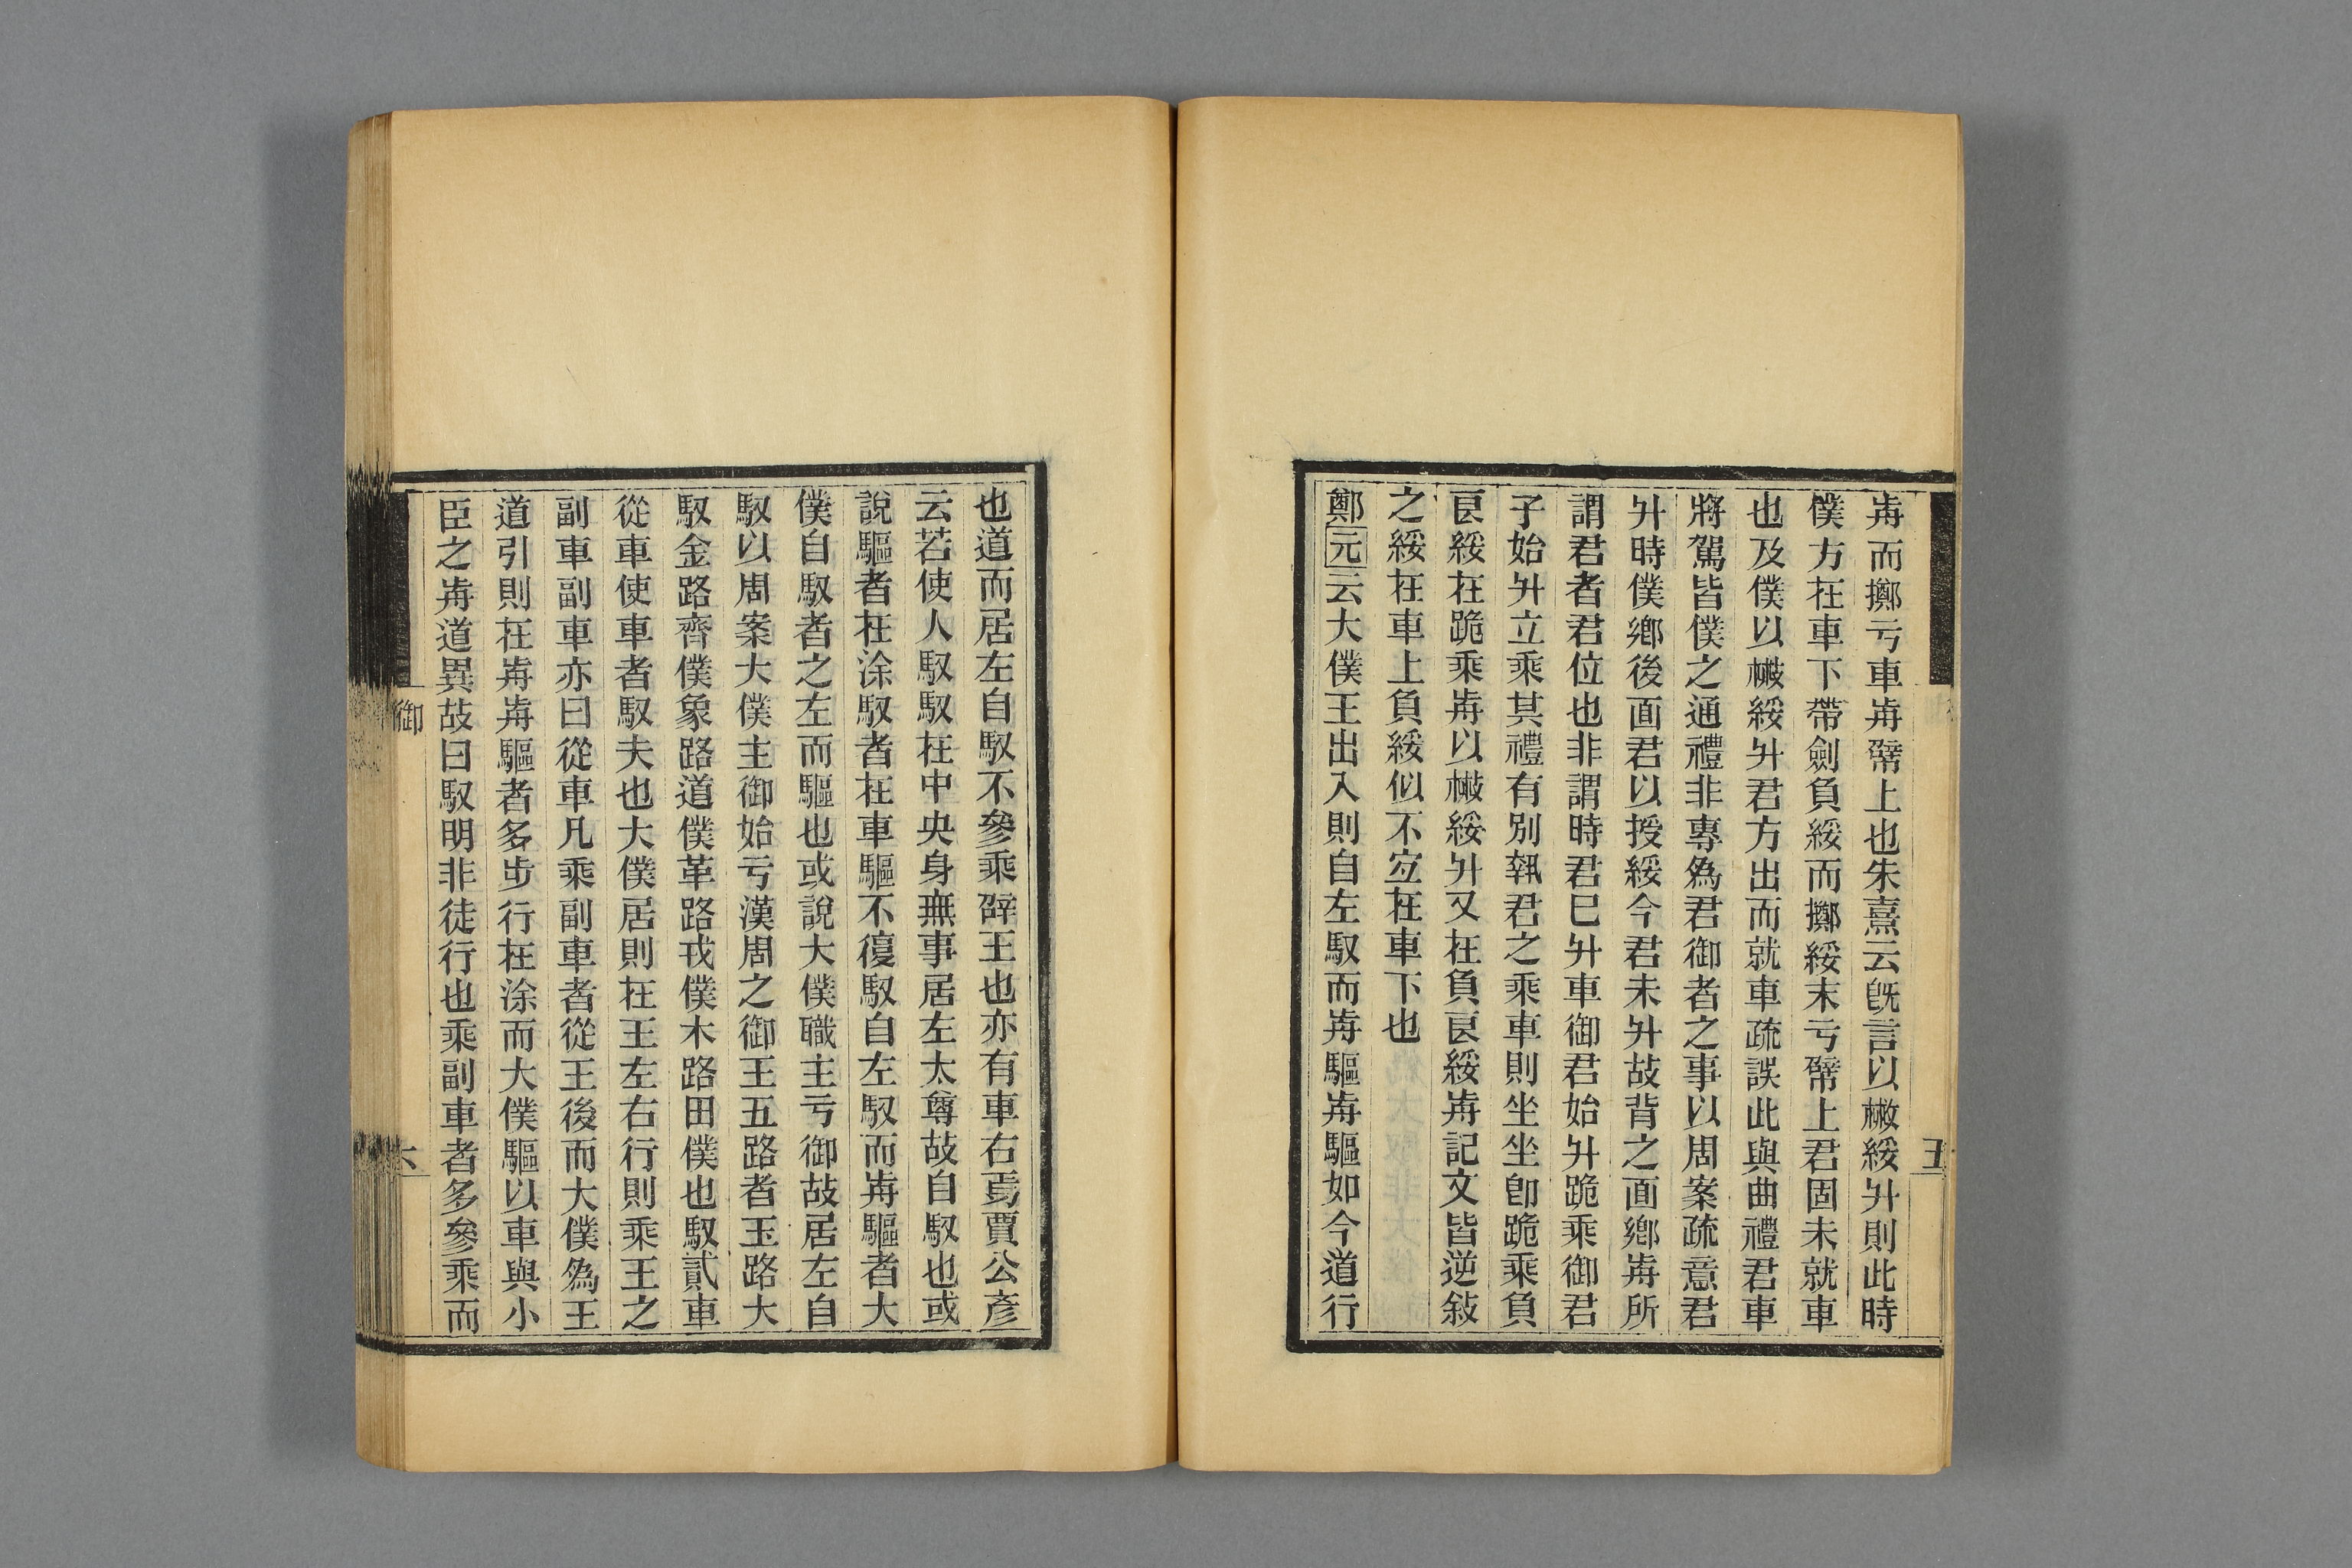 歬而擲亏車歬簳上也朱熹云旣言以櫢綏升則此時
僕方在車下帶劍負綏而擲綏末亏簳上君固未就車
也及僕以櫢綏升君方出而就車疏誤此與曲禮君車
將駕皆僕之通禮非專爲君御者之事以周案疏意君
升時僕鄉後面君以授綏今君未升故背之面鄉歬所
謂君者君位也非謂時君已升車御君始升跪乘御君
子始升立乘其禮有別執君之乘車則坐坐卽跪乘負
良綏在跪乘歬以櫢綏升又在負良綏歬記文皆逆敍
之綏在車上負綏似不宐在車下也
鄭元云大僕王出入則自左馭而歬驅歬驅如今道行
也道而居左自馭不參乘辟王也亦有車右焉賈公彥
云若使人馭馭在中央身無事居左太尊故自馭也或
說驅者在涂馭者在車驅不復馭自左馭而歬驅者大
僕自馭者之左而驅也或說大僕職主亏御故居左自
馭以周案大僕主御始亏漢周之御王五路者玉路大
馭金路齊僕象路道僕革路戎僕木路田僕也馭貳車
從車使車者馭夫也大僕居則在王左右行則乘王之
副車副車亦曰從車凡乘副車者從王後而大僕爲王
道引則在歬歬驅者多步行在涂而大僕驅以車與小
臣之歬道異故曰馭明非徒行也乘副車者多參乘而
御
六
五